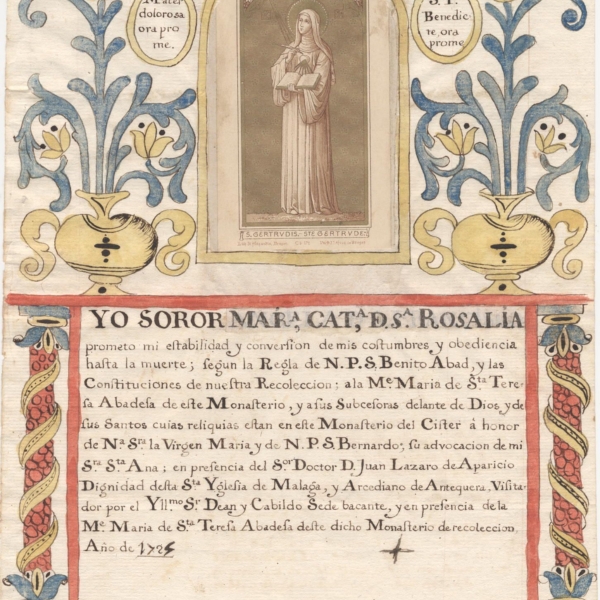 Mater
dolorosa
ora pro
me.
S. P.
Benedic-
te, ora
pro me
S. GERTRVDIS. STE GERTRVDE.
YO SOROR MARᴬ, CATᴬ, D, Sᴬ ROSALÍA
prometo mi estabilidad y conversion de mis costumbres, y obediencia
hasta la muerte; segun la Regla de N.P.S, Benito Abad, y las
Constituciones de nuestra Recoleccion: a la Mᵉ Maria de Sᵗᵃ Tere
sa Abadesa de este Monasterio, y a sus Subcesoras delante de Dios, y de
sus Santos cuias reliquias estan en este Monasterio del Cister á honor
de Nᵃ Srᵃ la Virgen Maria, y de N.P.S. Bernardo, su advocacion de mi
Srᵃ Sᵗᵃ Ana; en presencia del Sᵒʳ Doctor D. Juan Lazaro de Aparicio
Dignidad desta Sᵗᵃ Yglesia de Malaga, y Arcediano de Antequera. Visita-
dor por el Yllᵐᵒ Sʳ Dean y Cabildo Sede bacante, y en presencia de la
Mᵉ Maria de Sᵗᵃ Teresa Abadesa deste dicho Monasterio de recoleccion.
Año de 1725